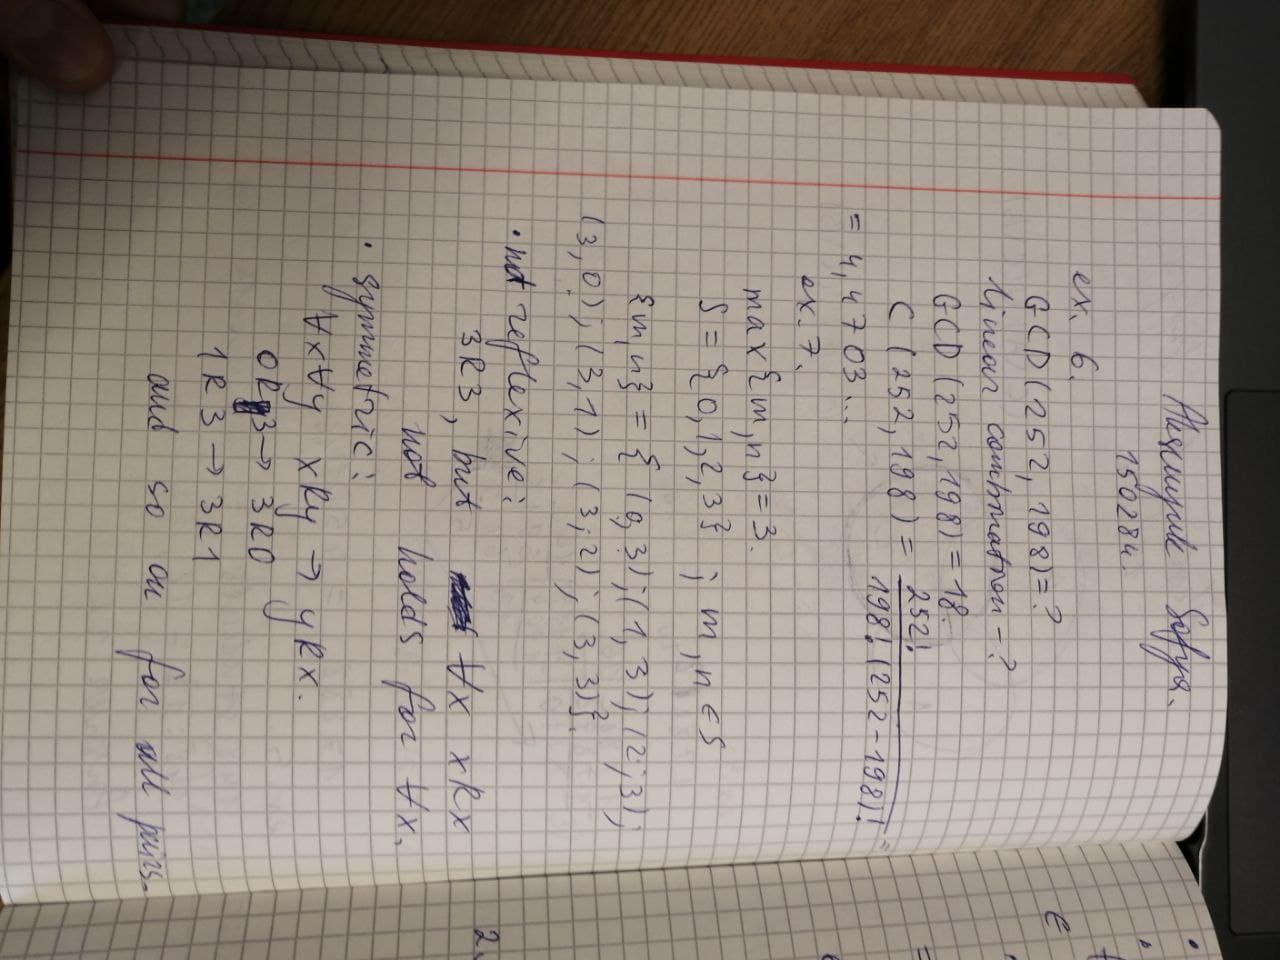 Sofya.
150284.
ex. 6.
GCD(252, 198) = ?
Linear combination - ?
GCD(252, 198) = 18.
C(252, 198) = 252! / 198!(252-198)! =
= 4,4703...
ex. 7.
max{m,n} = 3.
S = {0,1,2,3} ; m,n ∈ S
{m,n} = { (0,3); (1,3); (2,3);
(3,0); (3,1); (3,2); (3,3)}.
• not reflexive:
3R3, but ∀x xRx
not holds for ∀x.
• symmetric:
∀x∀y xRy → yRx.
0R3 → 3R0
1R3 → 3R1
and so on for all pairs.
2.
e